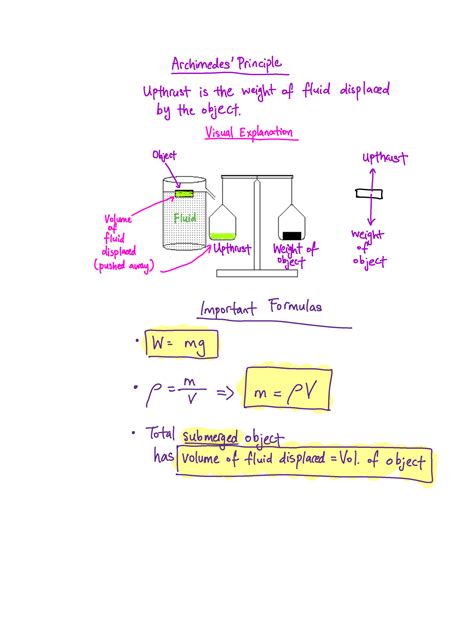 Archimedes' Principle
Upthrust is the weight of fluid displaced
by the object.
Visual Explanation
Object
Fluid
Volume
of
fluid
displaced
(pushed away)
Upthrust
Weight of
object
Upthrust
Weight
of
object
Important Formulas
• W = mg
• ρ = m/V ⇒ m = ρV
• Total submerged object
has volume of fluid displaced = Vol. of object